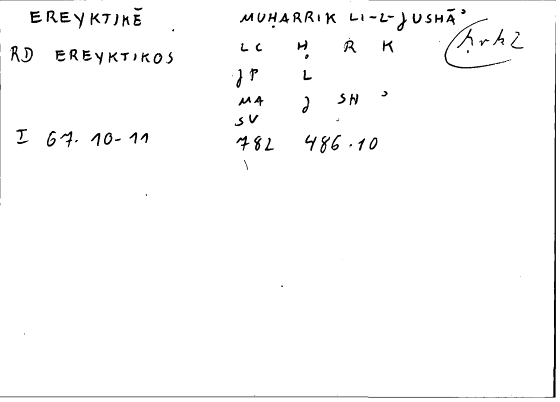 EREYKTIKĒ MUḤARRIK LI-L-JUSHĀʾ
RD EREYKTIKOS LC Ḥ R K ḥrk2
JP L
MA J SH ʾ
SV
I 67.10-11 782 486.10